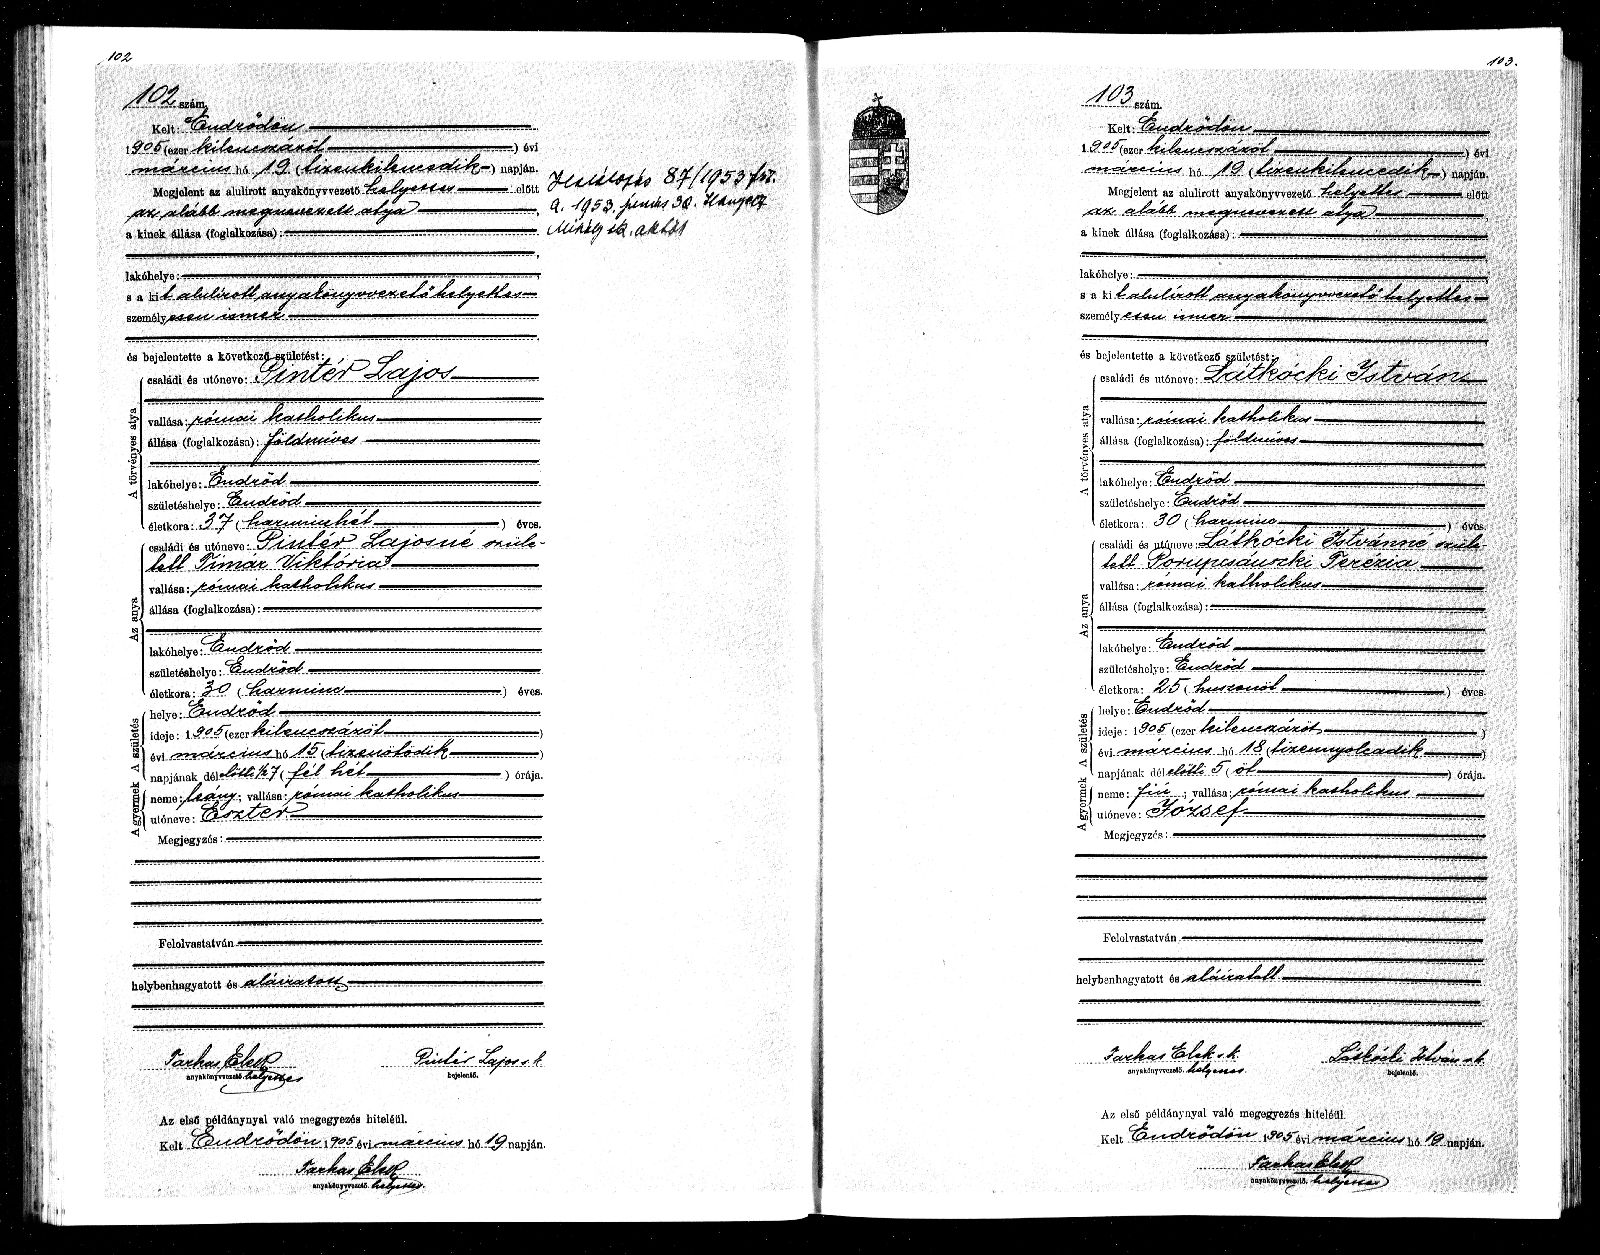 102
102 szám.
Kelt: Endrődön
1905 (ezer kilenczázöt) évi
március hó 19. (tizenkilencedik) napján.
Megjelent az alulirott anyakönyvvezető helyettes előtt
az alább megnevezett atya,
a kinek állása (foglalkozása):
lakóhelye:
s a kit alulírott anyakönyvvezető helyettes
személyesen ismer
és bejelentette a következő születést:
A törvényes atya
családi és utóneve: Pintér Lajos
vallása: római katholikus
állása (foglalkozása): földmíves
lakóhelye: Endrőd
születéshelye: Endrőd
életkora: 37 (harminchét) éves.
Az anya
családi és utóneve: Pintér Lajosné szüle-
tett Tímár Viktória
vallása: római katholikus
állása (foglalkozása):
lakóhelye: Endrőd
születéshelye: Endrőd
életkora: 30 (harminc) éves.
A születés
helye: Endrőd
ideje: 1905 (ezer kilenczázöt)
évi március hó 15 (tizenötödik)
napjának dél előtti 1/2 7 (fél hét) órája.
A gyermek
neme: leány; vallása: római katholikus
utóneve: Eszter
Megjegyzés:
Felolvastatván
helybenhagyatott és aláiratott
Farkas Elek Pintér Lajos s.k.
anyakönyvvezető. helyettes bejelentő.
Az első példánynyal való megegyezés hiteléül.
Kelt Endrődön 1905 évi március hó 19 napján.
Farkas Elek
anyakönyvvezető. helyettes.
87/1953
1953.
Mihály
103.
103 szám.
Kelt: Endrődön
1905 (ezer kilenczázöt) évi
március hó 19 (tizenkilencedik) napján.
Megjelent az alulirott anyakönyvvezető helyettes előtt
az alább megnevezett atya,
a kinek állása (foglalkozása):
lakóhelye:
s a kit alulírott anyakönyvvezető helyettes
személyesen ismer
és bejelentette a következő születést:
A törvényes atya
családi és utóneve: Látkócki István
vallása: római katholikus
állása (foglalkozása): földmíves
lakóhelye: Endrőd
születéshelye: Endrőd
életkora: 30 (harminc) éves.
Az anya
családi és utóneve: Látkócki Istvánné szüle-
tett Terézia
vallása: római katholikus
állása (foglalkozása):
lakóhelye: Endrőd
születéshelye: Endrőd
életkora: 25 (huszonöt) éves.
A születés
helye: Endrőd
ideje: 1905 (ezer kilenczázöt)
évi március hó 18 (tizennyolcadik)
napjának dél előtti 5 (öt) órája.
A gyermek
neme: fiú; vallása: római katholikus
utóneve: József
Megjegyzés:
Felolvastatván
helybenhagyatott és aláiratott
Farkas Elek s.k. Látkócki István s.k.
anyakönyvvezető. helyettes bejelentő.
Az első példánynyal való megegyezés hiteléül.
Kelt Endrődön 1905 évi március hó 19 napján.
Farkas Elek
anyakönyvvezető. helyettes